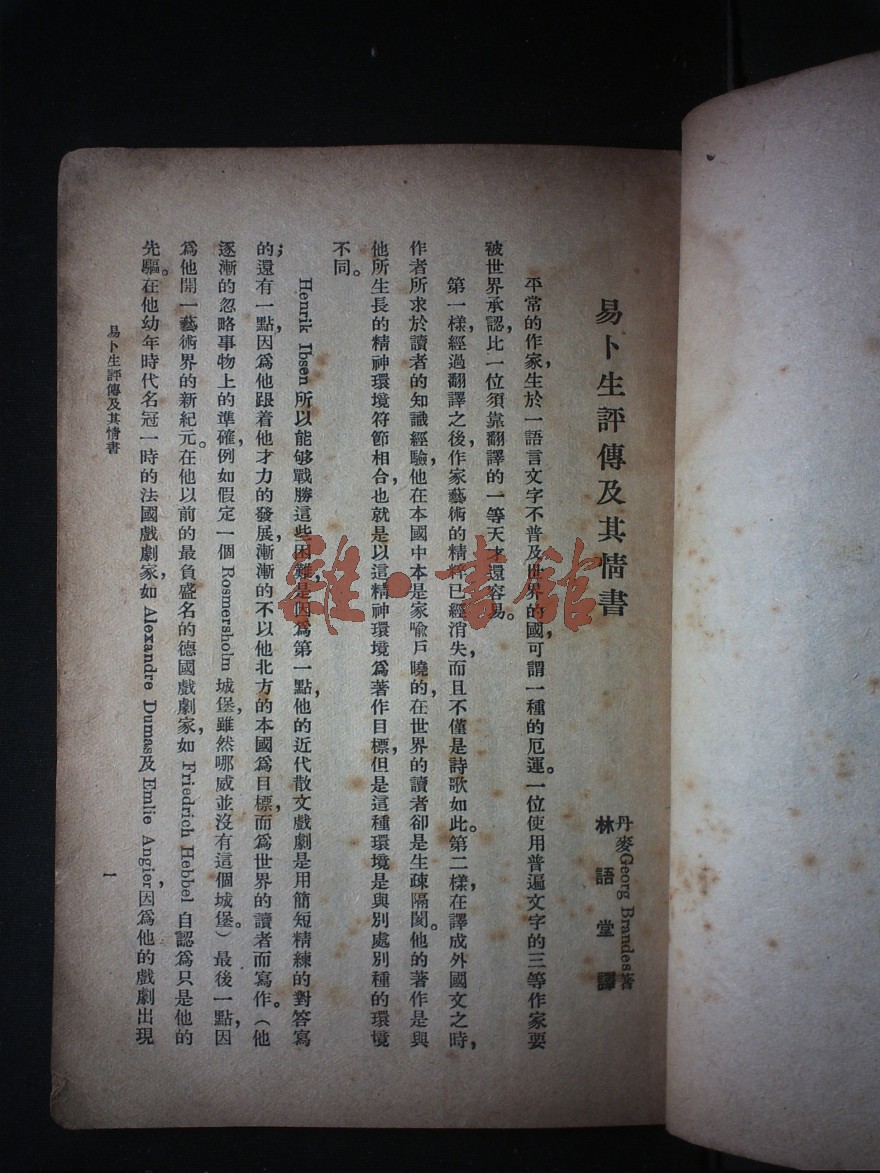 易卜生評傳及其情書
丹麥Georg Brandes著
林語堂譯
平常的作家，生於一語言文字不普及世界的國，可謂一種的厄運。一位使用普遍文字的三等作家要
被世界承認，比一位須靠翻譯的一等天才還容易。
第一樣，經過翻譯之後，作家藝術的精粹已經消失，而且不僅是詩歌如此。第二樣，在譯成外國文之時，
作者所求於讀者的知識經驗，他在本國中本是家喻戶曉的，在世界的讀者卻是生疎隔閡。他的著作是與
他所生長的精神環境符節相合，也就是以這精神環境爲著作目標，但是這種環境是與別處別種的環境
不同。
Henrik Ibsen 所以能够戰勝這些困難，是因爲第一點，他的近代散文戲劇是用簡短精練的對答寫
的；還有一點，因爲他跟着他才力的發展，漸漸的不以他北方的本國爲目標，而爲世界的讀者而寫作。（他
逐漸的忽略事物上的準確，例如假定一個 Rosmersholm 城堡，雖然哪威並沒有這個城堡。）最後一點，因
爲他開一藝術界的新紀元。在他以前的最負盛名的德國戲劇家，如 Friedrich Hebbel 自認爲只是他的
先驅。在他幼年時代名冠一時的法國戲劇家，如 Alexandre Dumas及 Emlie Angier，因爲他的戲劇出現
易卜生評傳及其情書
1
雜·書館